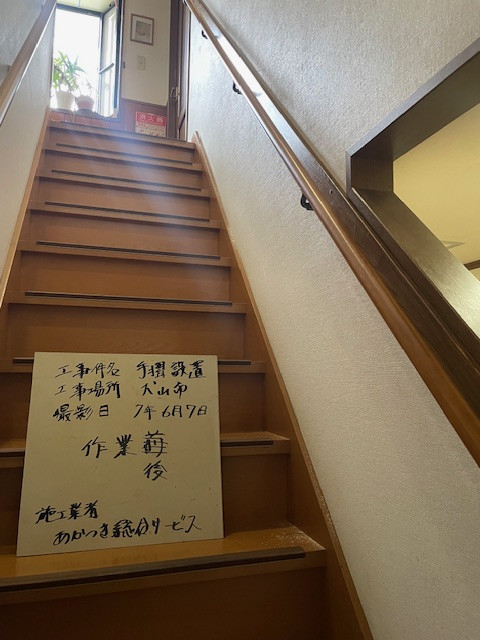 工事件名 手摺設置
工事場所 犬山市
撮影日 7年6月7日
作業
後
施工業者
あかつき総合サービス
消火器